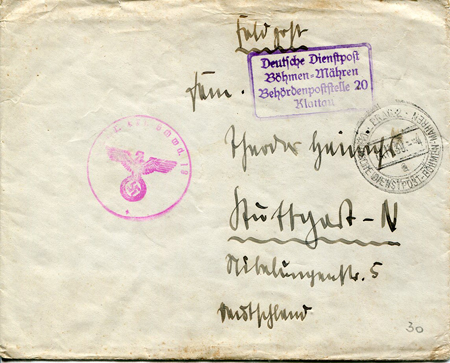 Feldpost
Deutsche Dienstpost
Böhmen-Mähren
Behördenpoststelle 20
Klattau
Herrn.
DEUTSCHE DIENSTPOST BÖHMEN-MÄHREN
Theodor Heinrich
Stuttgart-N
Nibelungenstr. 5
Deutschland
30